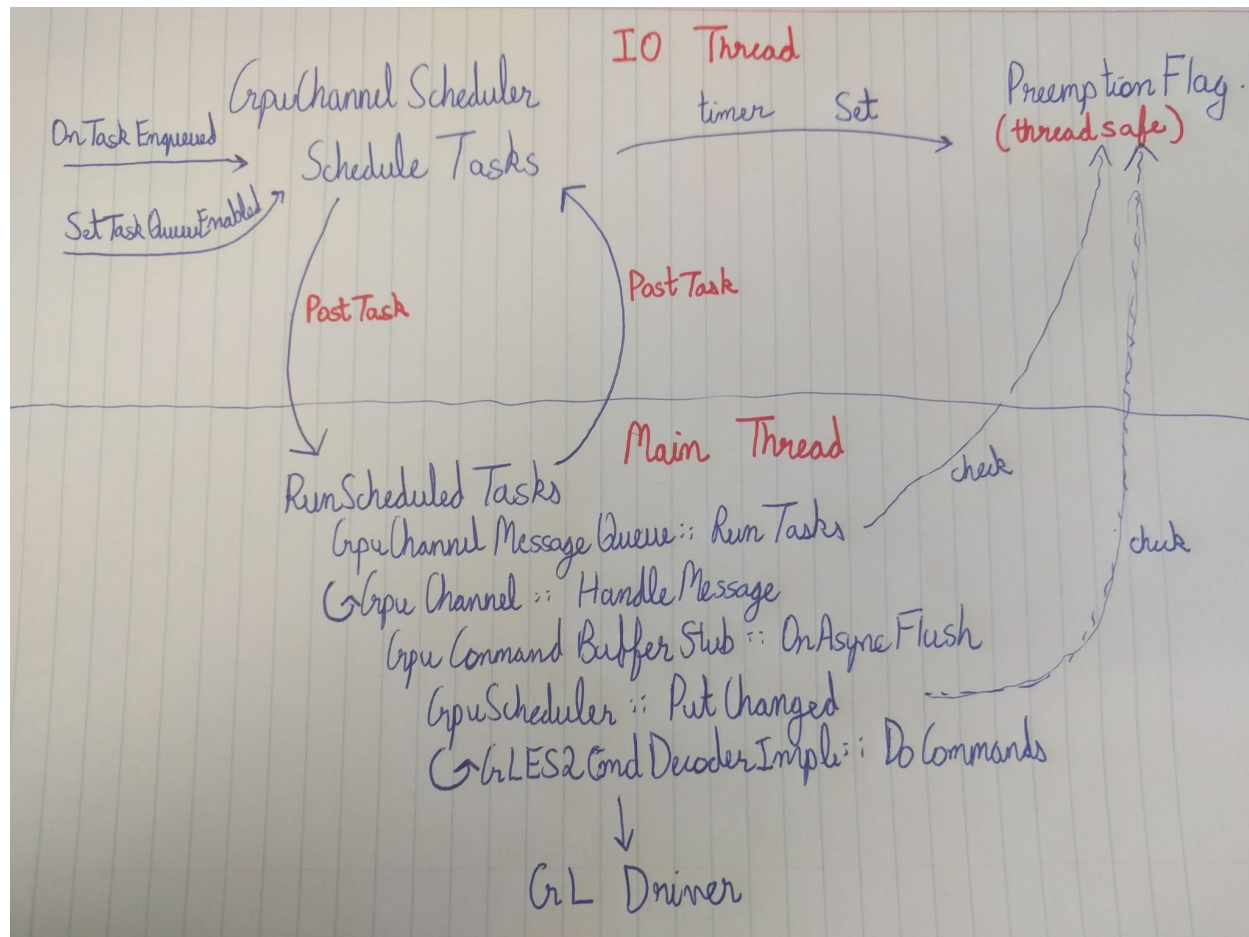 IO Thread
GpuChannel Scheduler
Schedule Tasks
OnTaskEnqueued
SetTaskQueueEnabled
timer Set
Preemption Flag.
(thread safe)
PostTask
PostTask
Main Thread
RunScheduled Tasks
GpuChannel Message Queue :: Run Tasks
check
Gpu Channel :: Handle Message
check
Gpu Command Buffer Stub :: OnAsyncFlush
GpuScheduler :: Put Changed
GLES2CmdDecoderImpl :: DoCommands
GL Driver